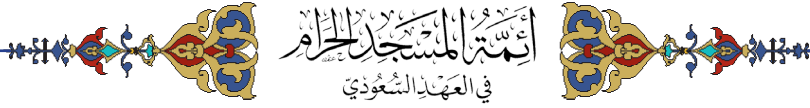 أَئِمَّةُ المَسْجِدِ الحَرَامِ
فِي العَهْدِ السُّعُودِيِّ